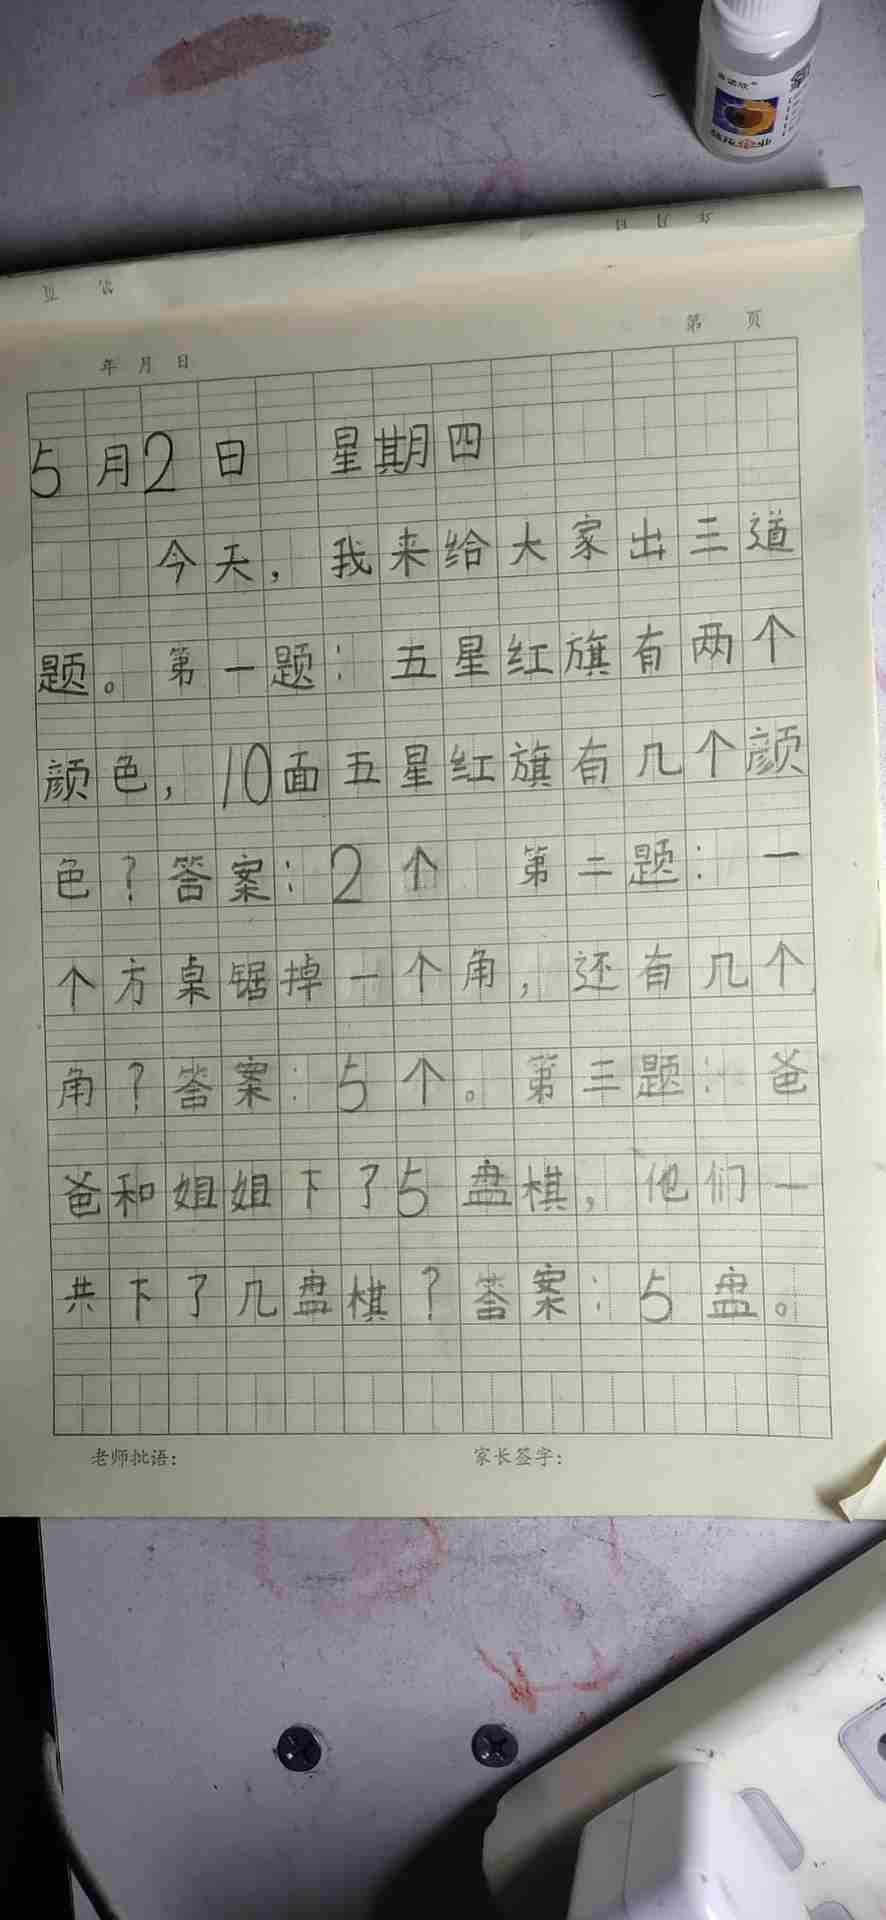 年 月 日
第 页
5月2日 星期四
今天，我来给大家出三道
题。第一题：五星红旗有两个
颜色，10面五星红旗有几个颜
色？答案：2个 第二题：一
个方桌锯掉一个角，还有几个
角？答案：5个。第三题：爸
爸和姐姐下了5盘棋，他们一
共下了几盘棋？答案：5盘。
老师批语：
家长签字：